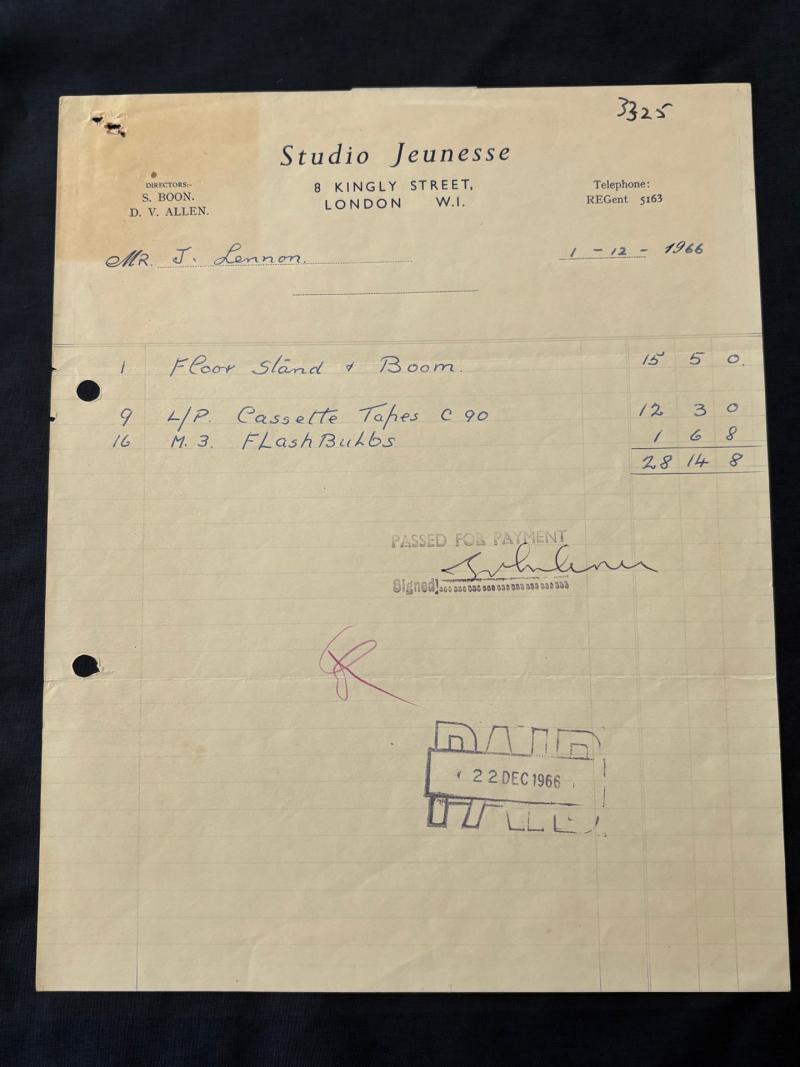 3325
Studio Jeunesse
DIRECTORS:-
S. BOON.
D. V. ALLEN.
8 KINGLY STREET,
LONDON W.1.
Telephone:
REGent 5163
MR. J. Lennon.
1 - 12 - 1966
1 Floor Stand & Boom. 15 5 0.
9 L/P. Cassette Tapes C 90 12 3 0
16 M. 3. FLashBuLbs 1 6 8
28 14 8
PASSED FOR PAYMENT
Signed
PAID
22 DEC 1966